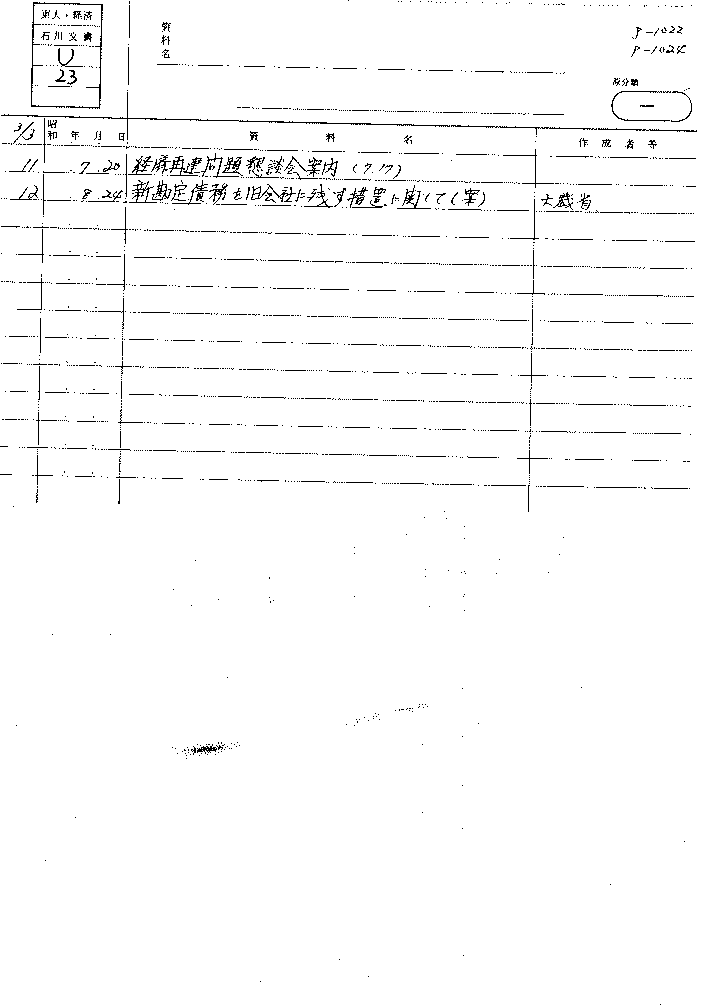 東大・経済
石川文書
U
23
資料名
P-1022
P-1024
原分類
一
3/3
昭和 年 月 日 資料名 作成者等
11 7 20 経済再建問題懇談会案内(7.17)
12 8 24 新勘定債務を旧会社に残す措置に関して(案) 大蔵省